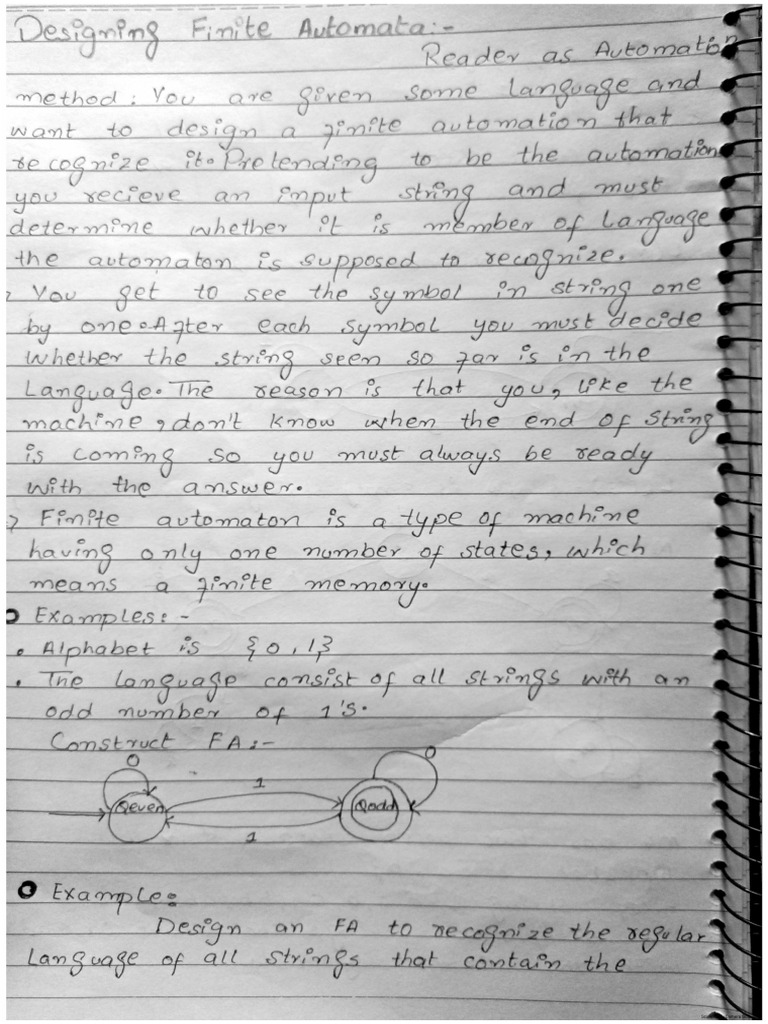 Designing Finite Automata:-
Reader as Automation
method: You are given some language and
want to design a finite automation that
recognize it. Pretending to be the automation
you recieve an input string and must
determine whether it is member of language
the automaton is supposed to recognize.
You get to see the symbol in string one
by one. After each symbol you must decide
whether the string seen so far is in the
Language. The reason is that you, like the
machine, don't know when the end of string
is coming so you must always be ready
with the answer.
Finite automaton is a type of machine
having only one number of states, which
means a finite memory.
Examples:-
• Alphabet is {0, 1}
• The language consist of all strings with an
odd number of 1's.
Construct FA:-
0 1 0
Qeven Qodd
1
Example:
Design an FA to recognize the regular
Language of all strings that contain the